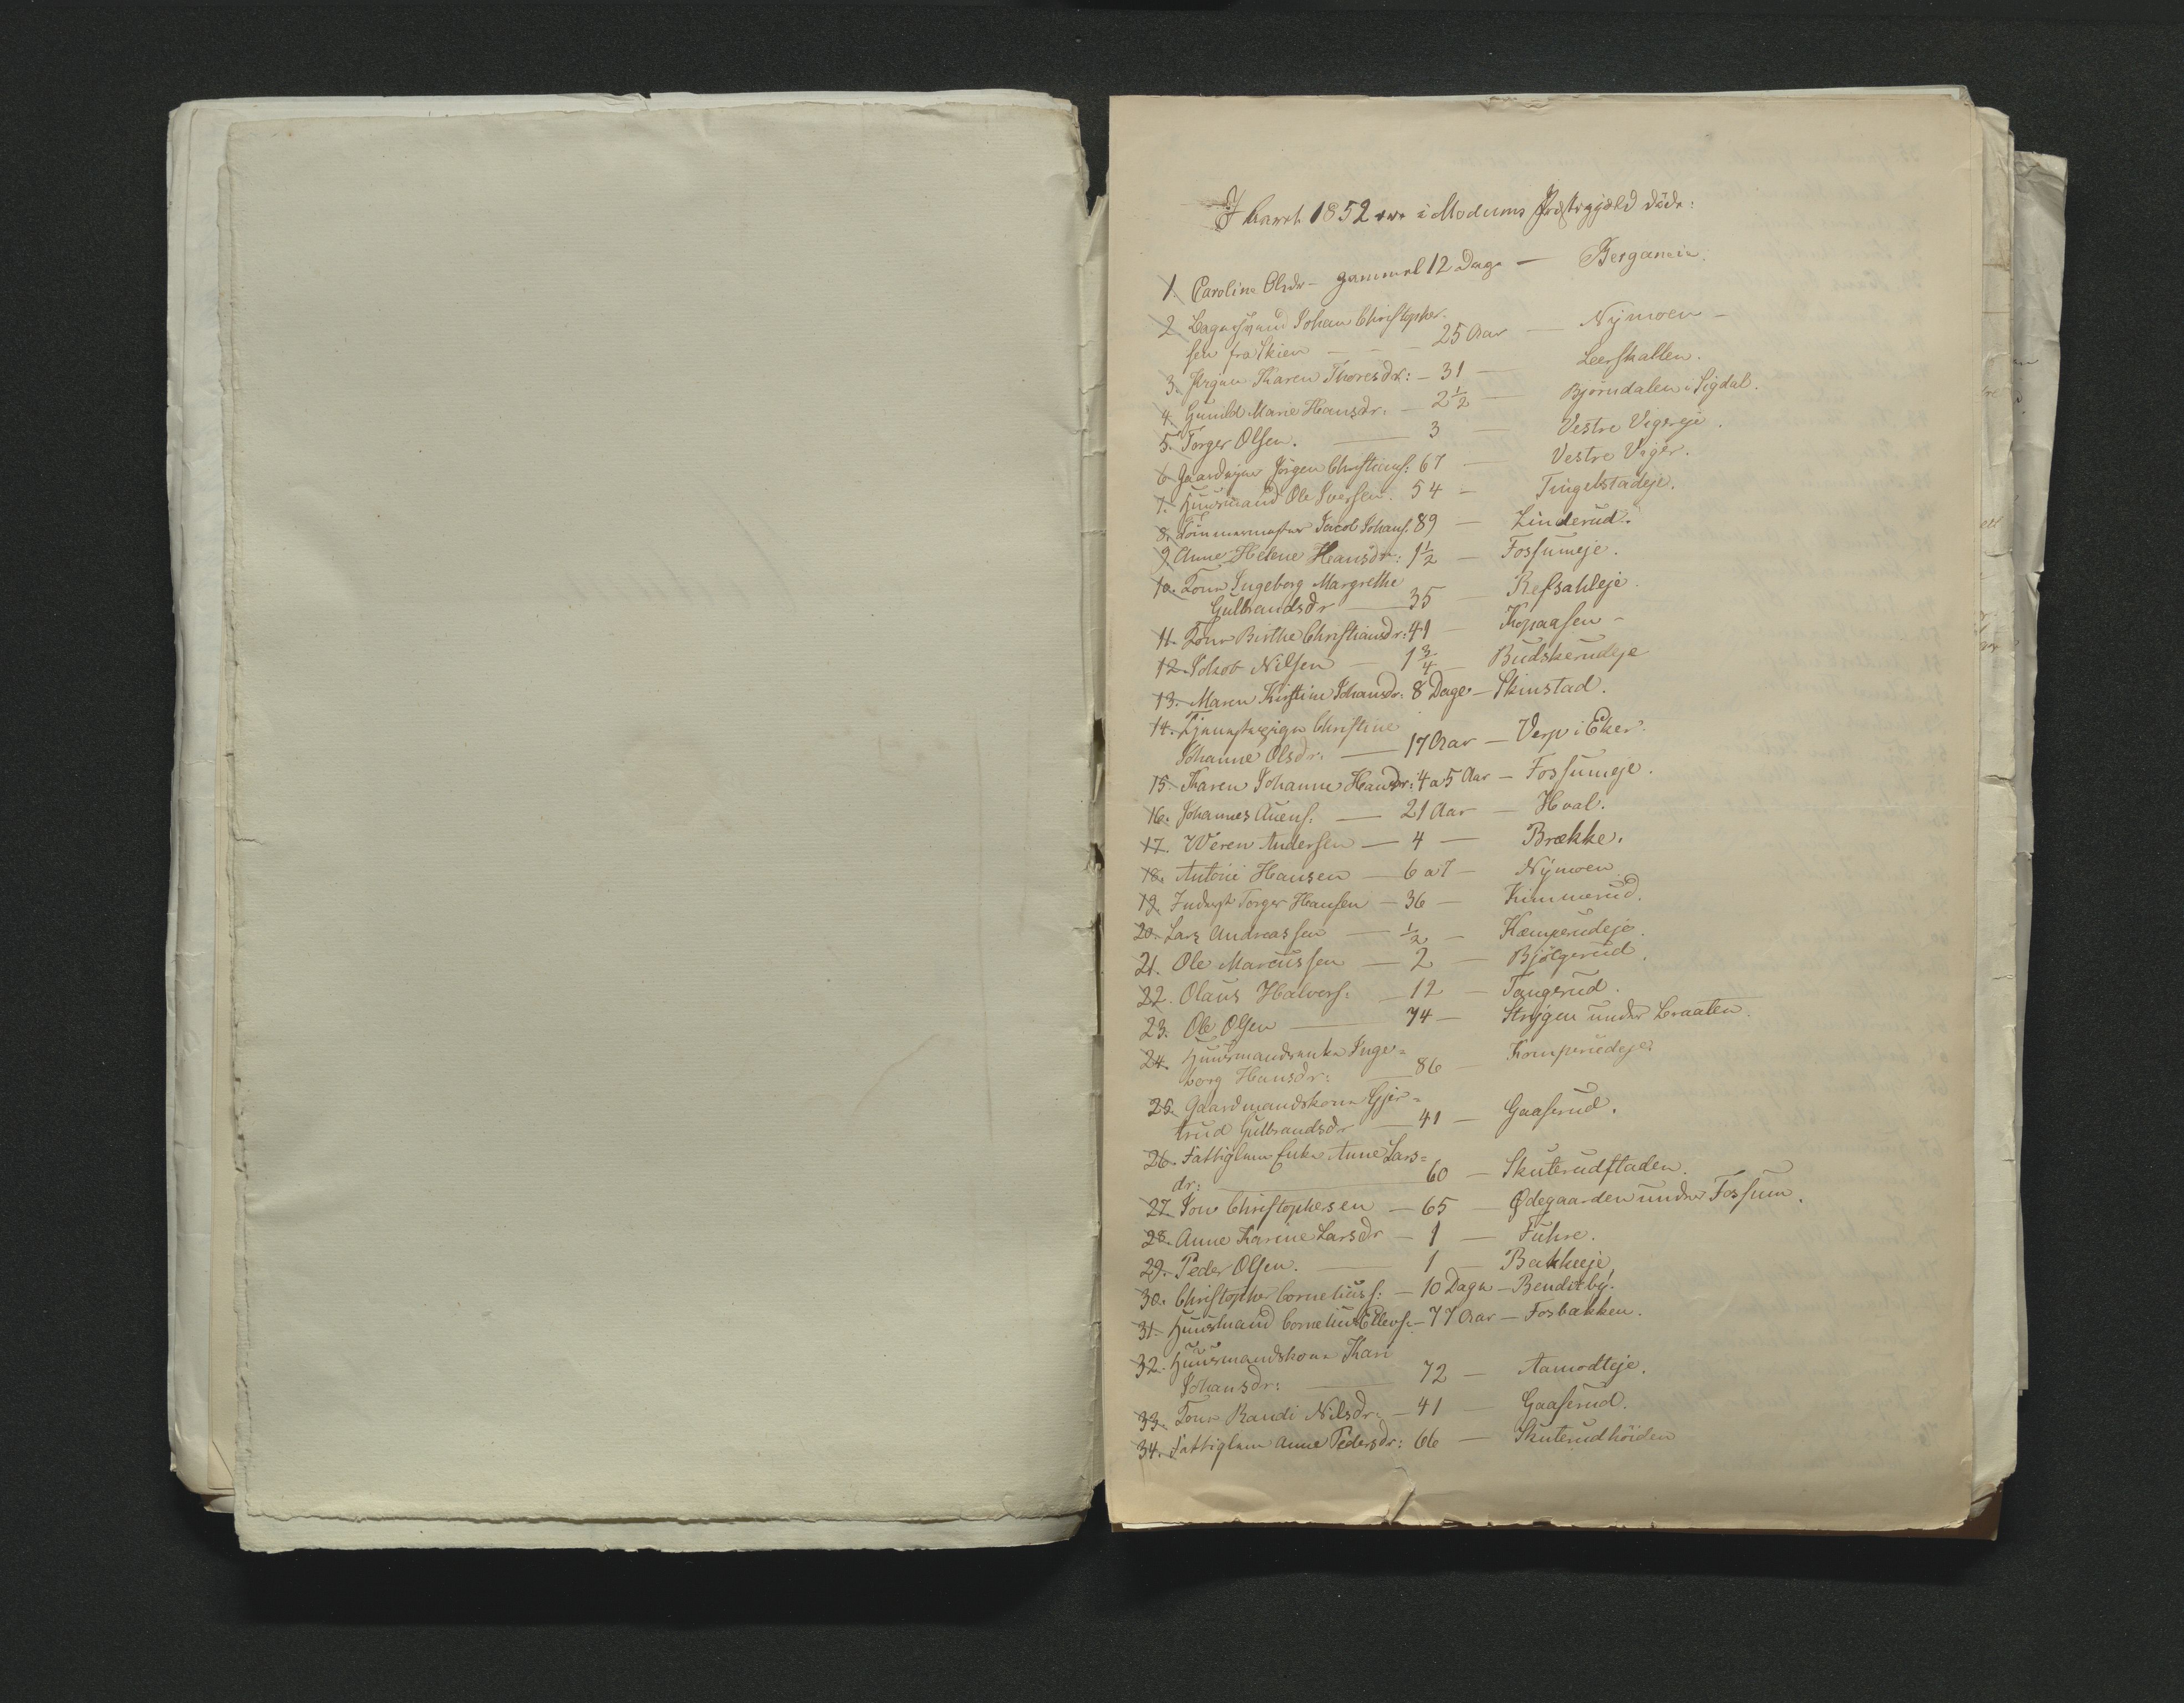 I Aaret 1852 ere i Modums Præstegjæld döde:
1. Caroline Olsdr – gammel 12 Dage — Berganeie.
2. Bagersvend Johan Christopher-
sen fra Skien — — — 25 Aar — Nÿmoen –
3. Pigen Karen Thoresdr: – 31 — Leerskallen.
4. Gunild Marie Hansdr. – 2½ — Björndalen i Sigdal.
5. Torger Olsen. — 3 — Vestre Vigereje.
6. Gaardejer Jörgen Christians: 67 — Vestre Viger.
7. Huusmand Ole Iversen. 54 – Tingelstadeje.
8. Tömmermester Jacob Johans. 89 — Linderud.
9. Anne Helene Hansdr: 1½ — Fossumeje.
10. Kone Ingeborg Margrethe
Gulbrandsdr — 35 — Refsahleje
11. Kone Birthe Christiansdr: 41 — Kopaasen –
12. Jakob Nilsen — 1¾ — Budskerudeje
13. Maren Kirstine Johansdr: 8 Dage – Skinstad.
14. Tjenestepige Christine
Johanne Olsdr. — 17 Aar — Verp i Eker.
15. Karen Johanne Hansdr: 4 a 5 Aar — Fossumeje.
16. Johannes Auens: — 21 Aar — Hval.
17. Weren Andersen — 4 — Brække.
18. Antoni Hansen — 6 a 7 — Nÿmoen
19. Inderst Torger Hansen — 36 — Kimmerud.
20. Lars Andreassen — ½ — Kæmperudeje.
21. Ole Marcussen — 2 — Bjölgerud.
22. Olaus Halvors: — 12 — Tangerud.
23. Ole Olsen — 74 — Strÿgen under Braaten.
24. Huusmandsenke Inge=
borg Hansdr: — 86 — Komperudeje.
25. Gaardmandskone Gjer=
trud Gulbrandsdr — 41 — Gaaserud.
26. Fattiglem Enke Anne Lars=
dr: — 60 — Skuterudfladen.
27. Jon Christophersen — 65 — Ødegaarden under Fossum.
28. Anne Karine Larsdr — 1 — Fuhre.
29. Peder Olsen. — 1 — Bakkeeje,
30. Christopher Corneliuss: — 10 Dage — Bendikbÿ.
31. Huusmand Cornelius Ellevs. – 77 Aar — Fosbakken.
32. Huusmandskone Kari
Johansdr: — 72 — Aamodteje.
33. Kone Randi Nilsdr. — 41 — Gaaserud.
34. Fattiglem Anne Pedersdr: 66 — Skuterudhöiden